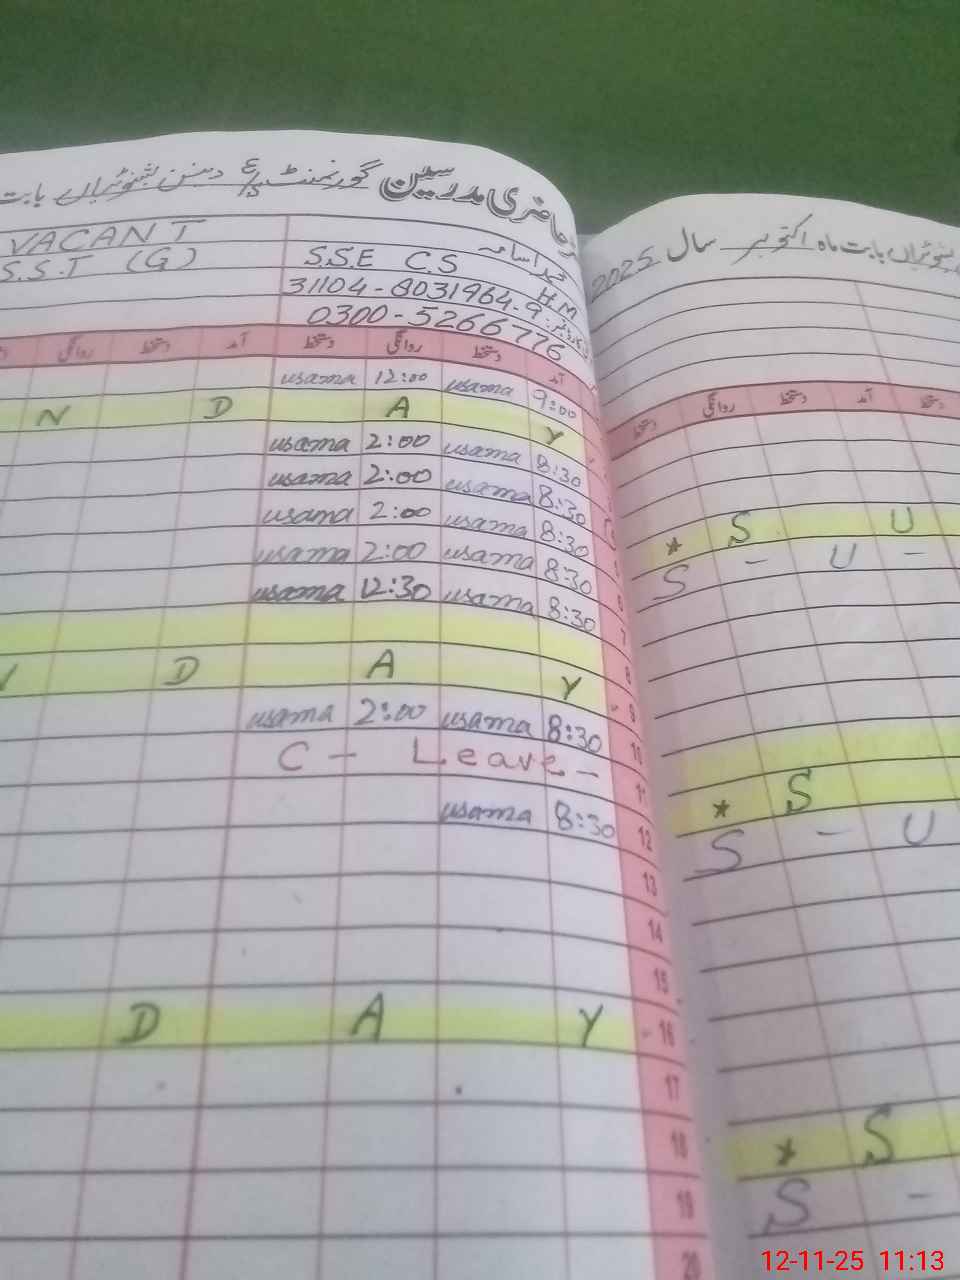 حاضری مدرسین گورنمنٹ بابت
VACANT
S.S.T (G)
محمد اسامہ H.M
SSE CS
31104-8031964-9
0300-5266776
آمد دستخط روانگی دستخط آمد دستخط روانگی
9:00 usama 12:00 usama
N D A Y
8:30 usama 2:00 usama
8:30 usama 2:00 usama
8:30 usama 2:00 usama
8:30 usama 2:00 usama
8:30 usama 12:30 usama
D A Y
8:30 usama 2:00 usama
C - Leave -
8:30 usama
D A Y
6
7
8
9
10
11
12
13
14
15
16
17
18
19
20
بابت ماہ اکتوبر سال 2025
دستخط آمد دستخط روانگی دستخط
* S U
S - U -
* S
S - U
* S
S -
12-11-25 11:13